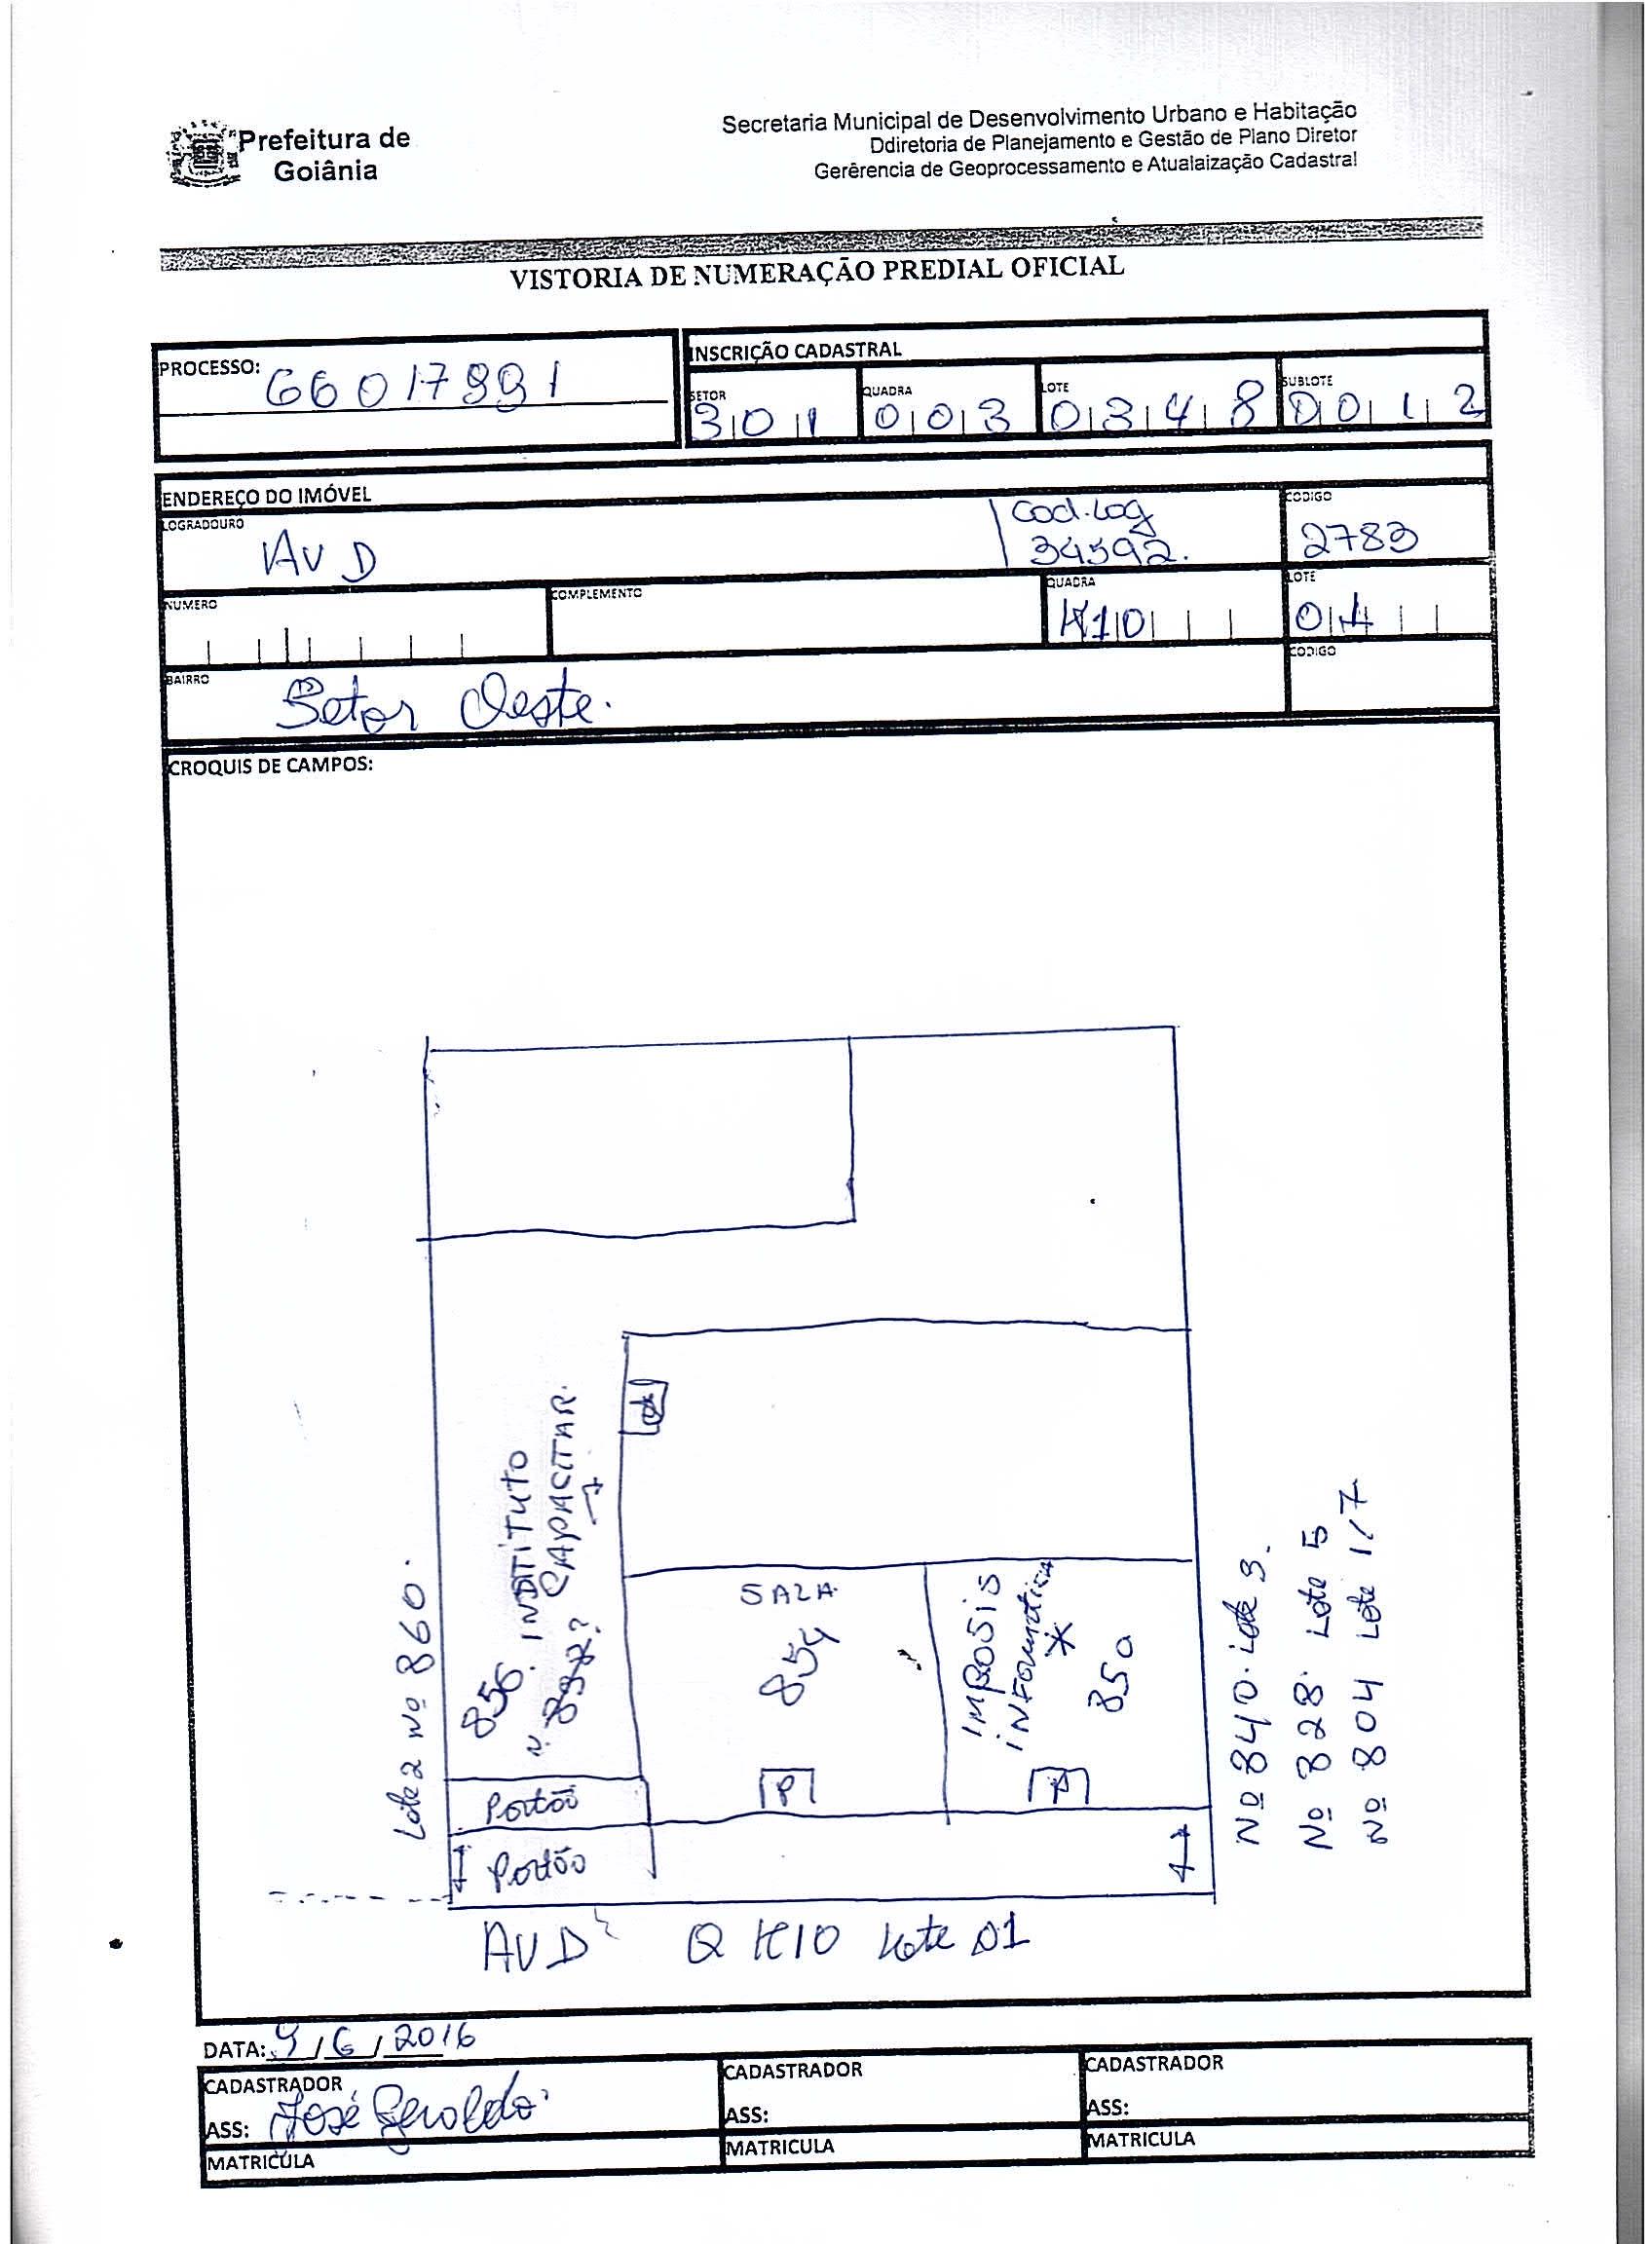 Prefeitura de
Goiânia
Secretaria Municipal de Desenvolvimento Urbano e Habitação
Ddiretoria de Planejamento e Gestão de Plano Diretor
Gerêrencia de Geoprocessamento e Atualaização Cadastral
VISTORIA DE NUMERAÇÃO PREDIAL OFICIAL
PROCESSO: 66017991
INSCRIÇÃO CADASTRAL
SETOR 301
QUADRA 003
LOTE 0348
SUBLOTE 0012
ENDEREÇO DO IMÓVEL
LOGRADOURO
AV D
Cod. Log
34592.
CODIGO
2783
NUMERO
COMPLEMENTO
QUADRA
K10
LOTE
01
BAIRRO
Setor Oeste.
CODIGO
CROQUIS DE CAMPOS:
Lote 2 Nº 860.
856. INSTITUTO
CAPACITAR.
SALA
854
IMPOSIS
INFORMÁTICA
850
Nº 840. Lote 3.
Nº 828. Lote 5
Nº 804 Lote 1/7
Portão
P
P
Portão
AV D Q K10 Lote 01
DATA: 9/6/2016
CADASTRADOR
ASS: José Geraldo
MATRICÚLA
CADASTRADOR
ASS:
MATRICULA
CADASTRADOR
ASS:
MATRICULA